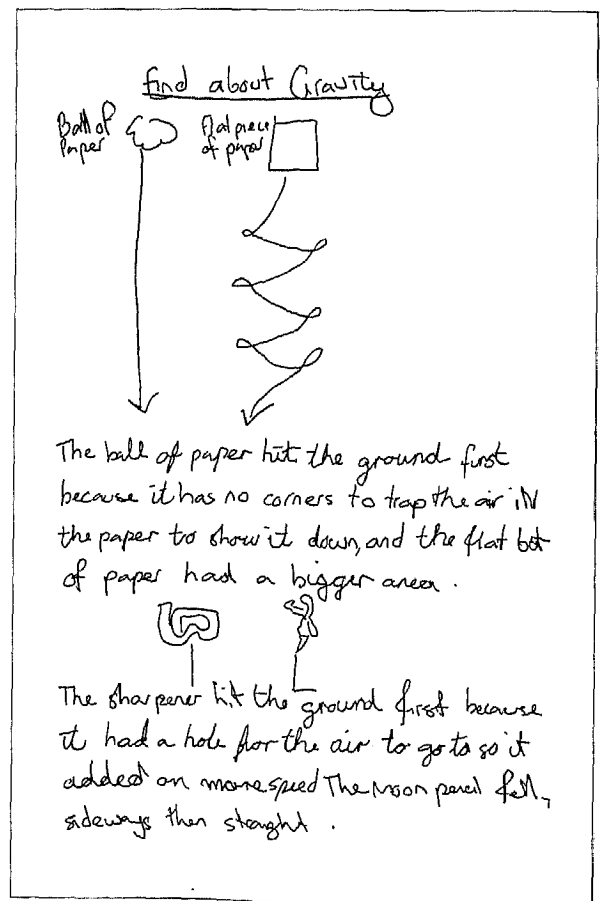 find about Gravity
Ball of
Paper
flat piece
of paper
The ball of paper hit the ground first
because it has no corners to trap the air iN
the paper to show it down, and the flat bit
of paper had a bigger area.
The sharpener hit the ground first because
it had a hole for the air to go to so it
added on more speed The Moon pencil fell,
sideways then staight.